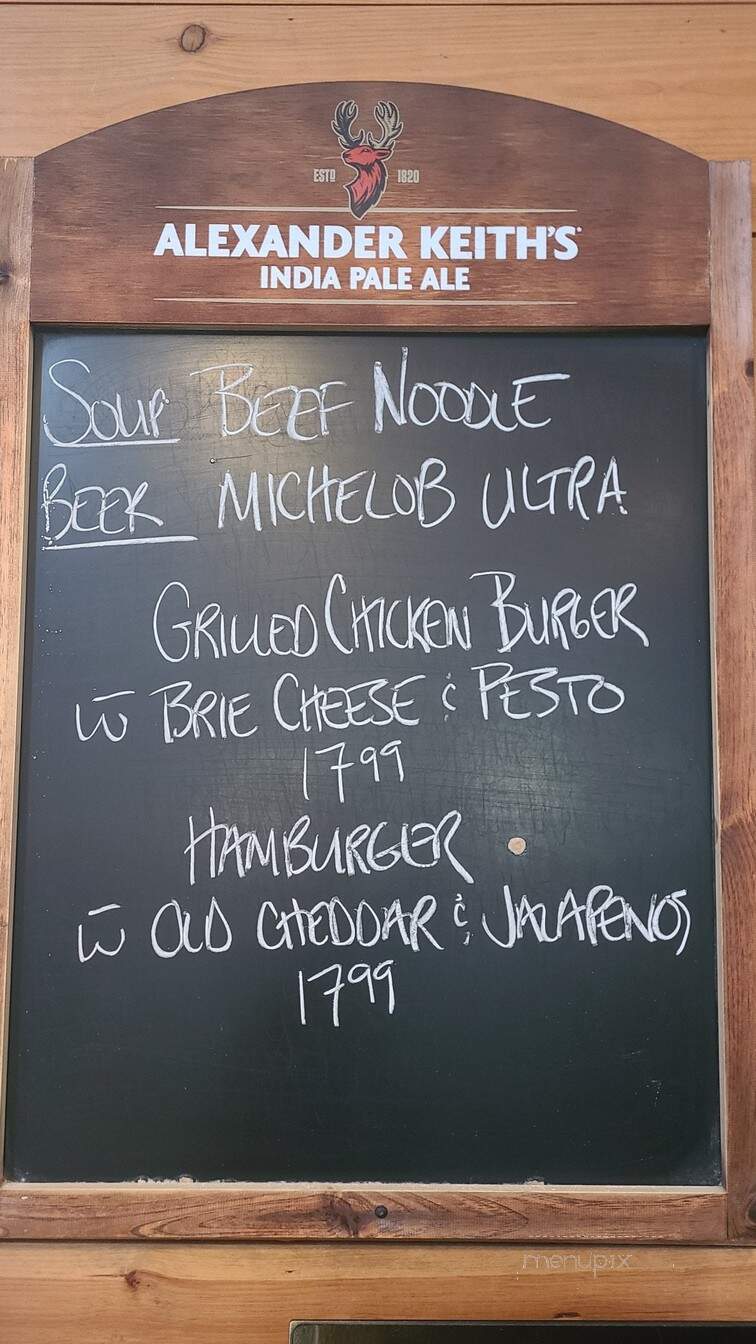 ESTD 1820
ALEXANDER KEITH'S
INDIA PALE ALE
SOUP BEEF NOODLE
BEER MICHELOB ULTRA
GRILLED CHICKEN BURGER
W BRIE CHEESE & PESTO
1799
HAMBURGER
W OLD CHEDDAR & JALAPENOS
1799
menupix